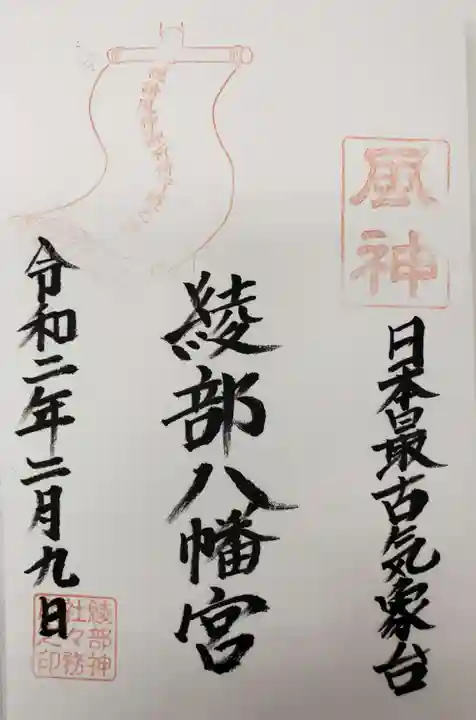 風神
日本最古気象台
綾部八幡宮
令和二年二月九日
綾部神
社々務
所之印